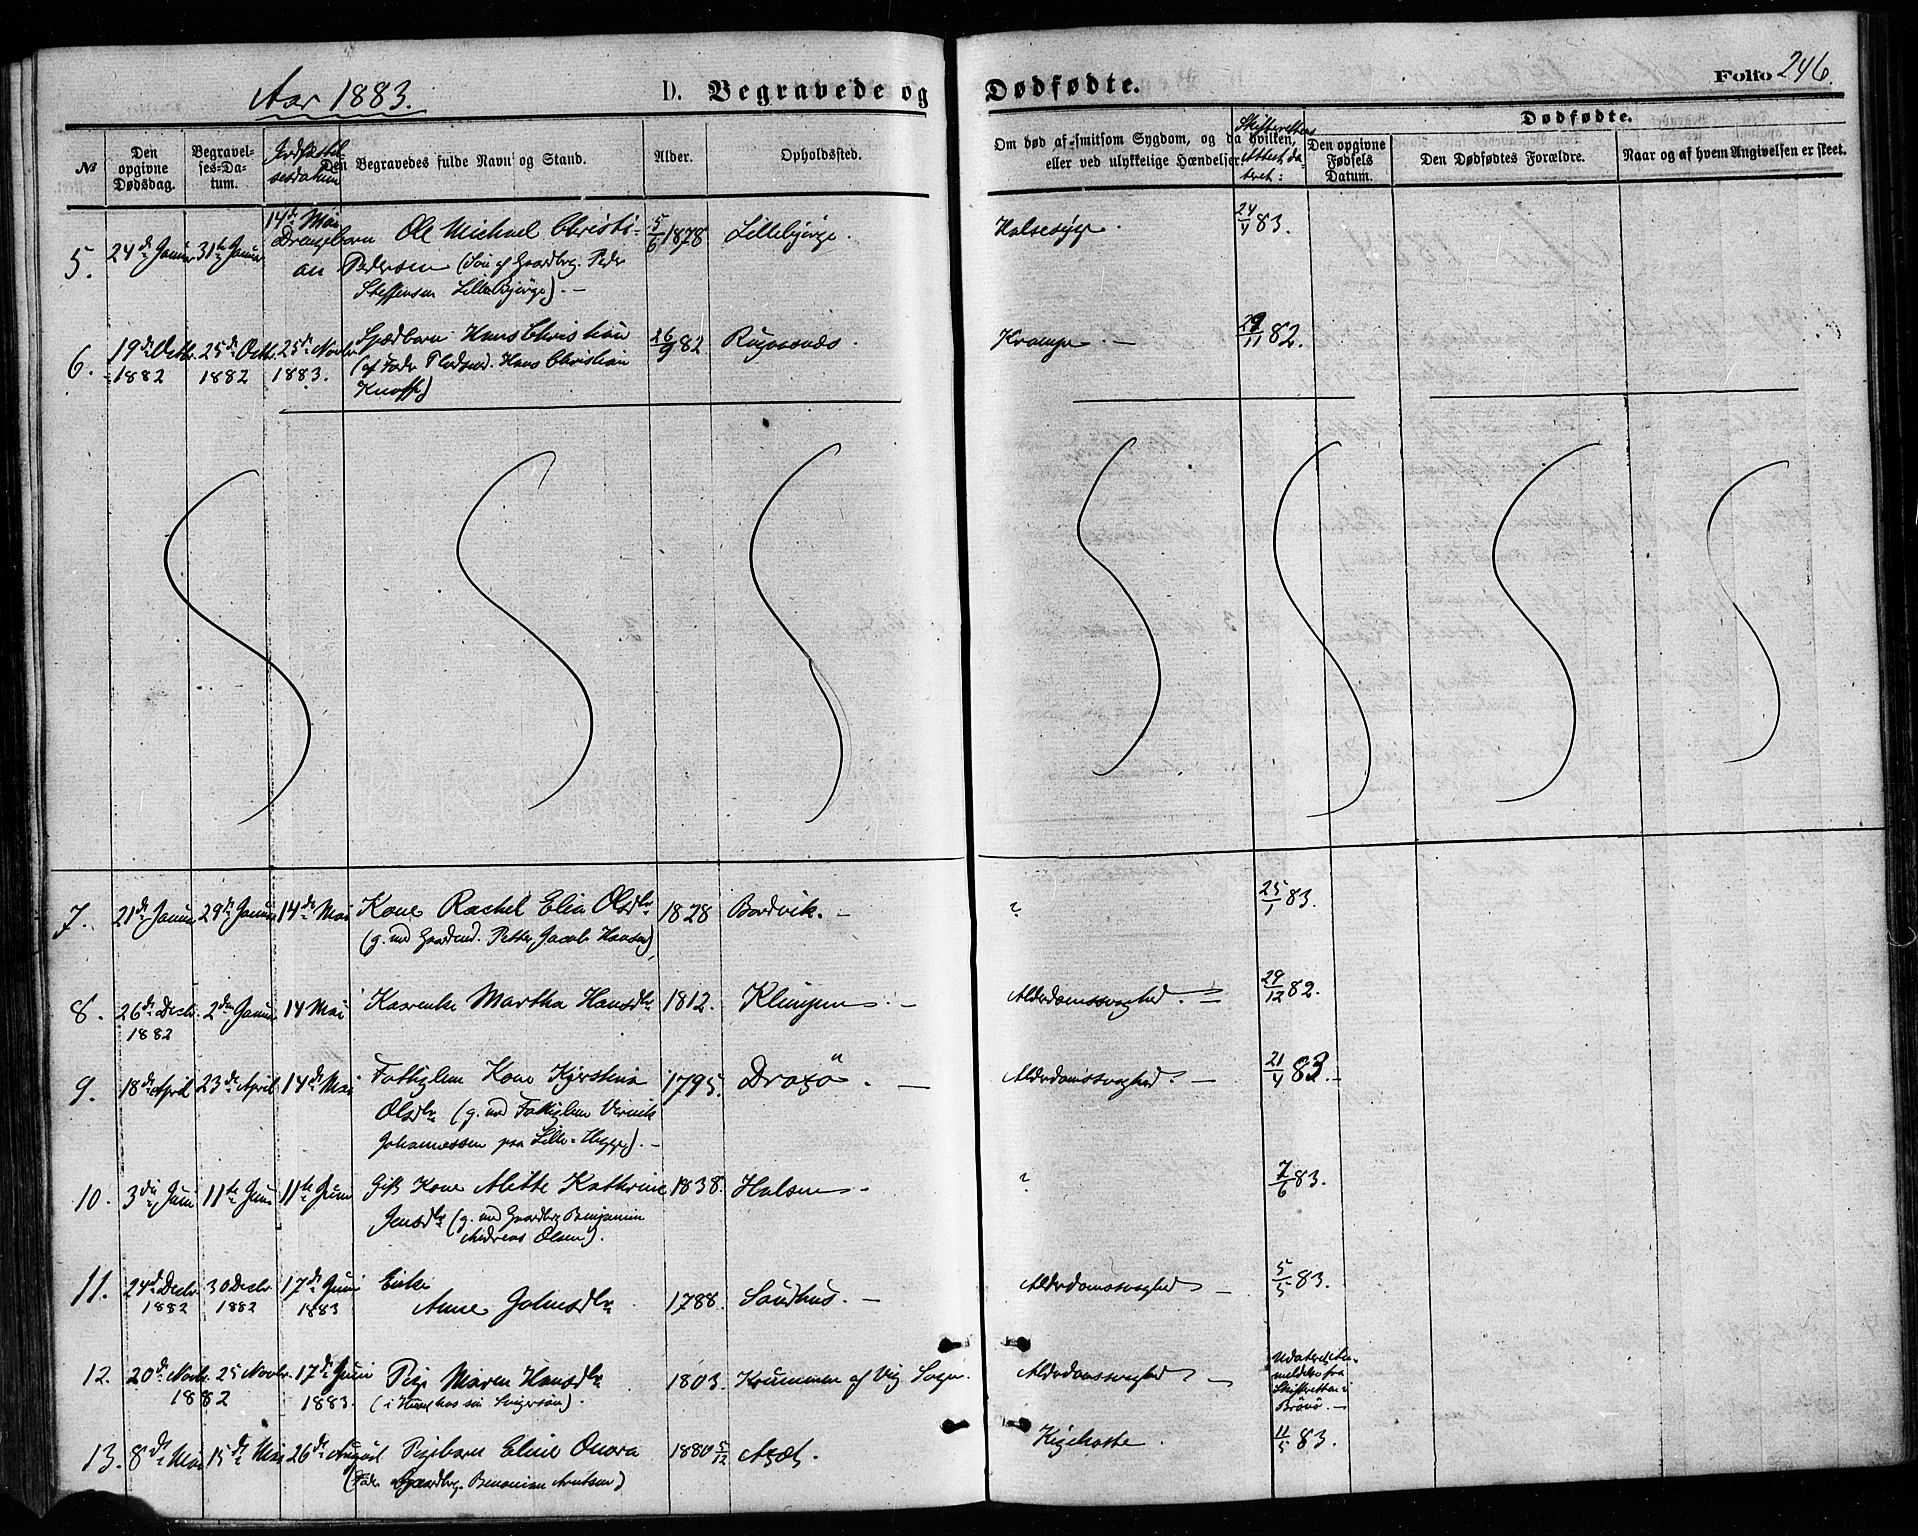 Aar 1883.
D. Begravede og Dødfødte.
Folio 246.
№
Den opgivne Dødsdag.
Begravelses-Datum.
Jordfæstelsesdatum
Den Begravedes fulde Navn og Stand.
Alder.
Opholdssted.
Om død af smitsom Sygdom, og da hvilken,
eller ved ulykkelige Hændelser.
Skifterettens Attest dateret:
Dødfødte.
Den opgivne Fødsels Datum.
Den Dødfødtes Forældre.
Naar og af hvem Angivelsen er skeet.
5. 24de Januar 31te Januar 14de Mai Drengebarn Ole Michael Christi- 5/6 1878 Lillebjerge. Halsesyge. 24/4 83.
an Pedersen (Søn af Gaardbrg. Peder
Steffensen Lillebjerge). —
6. 19de Octbr. 1882 25de Octbr. 1882 25de Novbr. 1883. Spædbarn Hans Christian 26/9 82 Krampe. — 29/11 82.
(af Fader Pladsmd. Hans Christian
Knoff)
7. 21de Januar 29de Januar 14de Mai Kone Rachel Elia Olsdtr 1828 Bardvik. — ? 25/1 83.
(g. med Gaardmd. Petter Jacob Hansen)
8. 26de Decbr. 1882 2den Januar 14 Mai Karenke Martha Hansdtr 1812. Klimpen. — Alderdomssvaghed. — 29/12 82.
9. 18de April 23de April 14de Mai Fattiglem Kone Kjerstina 1795. Draxö. — Alderdomssvaghed. — 21/4 83. —
Olsdtr (g. med Fattiglem
Johannessen paa Lille- ). —
10. 3die Juni 11te Juni 11te Juni Gift Kone Alette Kathrine 1838. Halsen. ? 7/6 83.
Jensdtr (g. med Gaardbrg Benjamin
Andreas Olsen).
11. 24de Decbr 1882 30 Decbr 1882 17de Juni 1883 Enke 1788. Sandhus. — Alderdomssvaghed — 5/5 83.
Anne Johnsdtr.
12. 20de Novbr. 1882 25 Novbr. 17de Juni 1883. Pige Maren Hansdtr 1803. Krummen af Vig Sogn. Alderdomssvaghed — Udateret Anmeldelse fra Skifteretten i Brönö. —
(i Huus hos sin Svigersøn).
13. 8de Mai 15de Mai 26de August Pigebarn Eline Onora 1880 5/12 Axet. Kighoste. 11/5 83.
(Fader Gaardbrg. Benonian Arntsen)